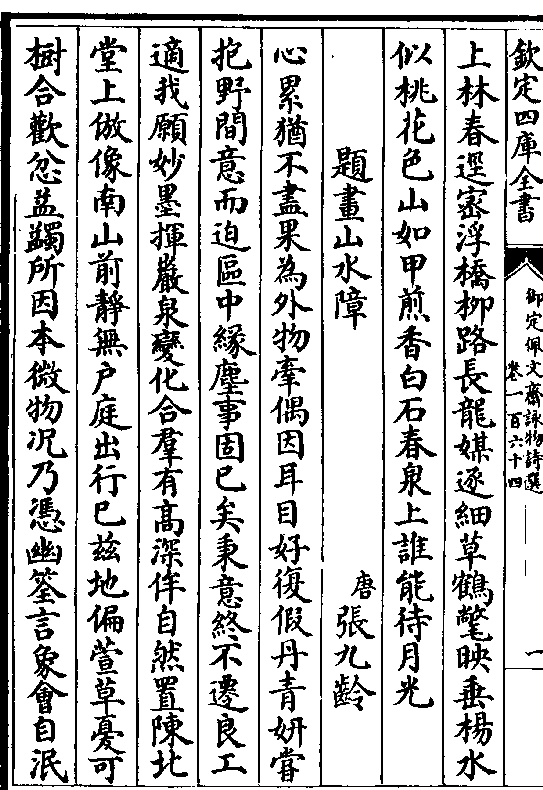 欽定四庫全書
御定佩文齋詠物詩選
卷一百六十四
一
上林春逕密浮橋栁路長龍媒逐細草鶴氅映垂楊水
似桃花色山如甲煎香白石春泉上誰能待月光
題畫山水障
唐張九齡
心累猶不盡果為外物牽偶因耳目好復假丹青妍嘗
抱野間意而迫區中緣塵事固已矣秉意終不遷良工
適我願妙墨揮巖泉變化合羣有髙深侔自然置陳北
堂上倣像南山前靜無户庭出行已兹地偏萱草憂可
樹合歡忿益蠲所因本微物况乃憑幽筌言象會自泯